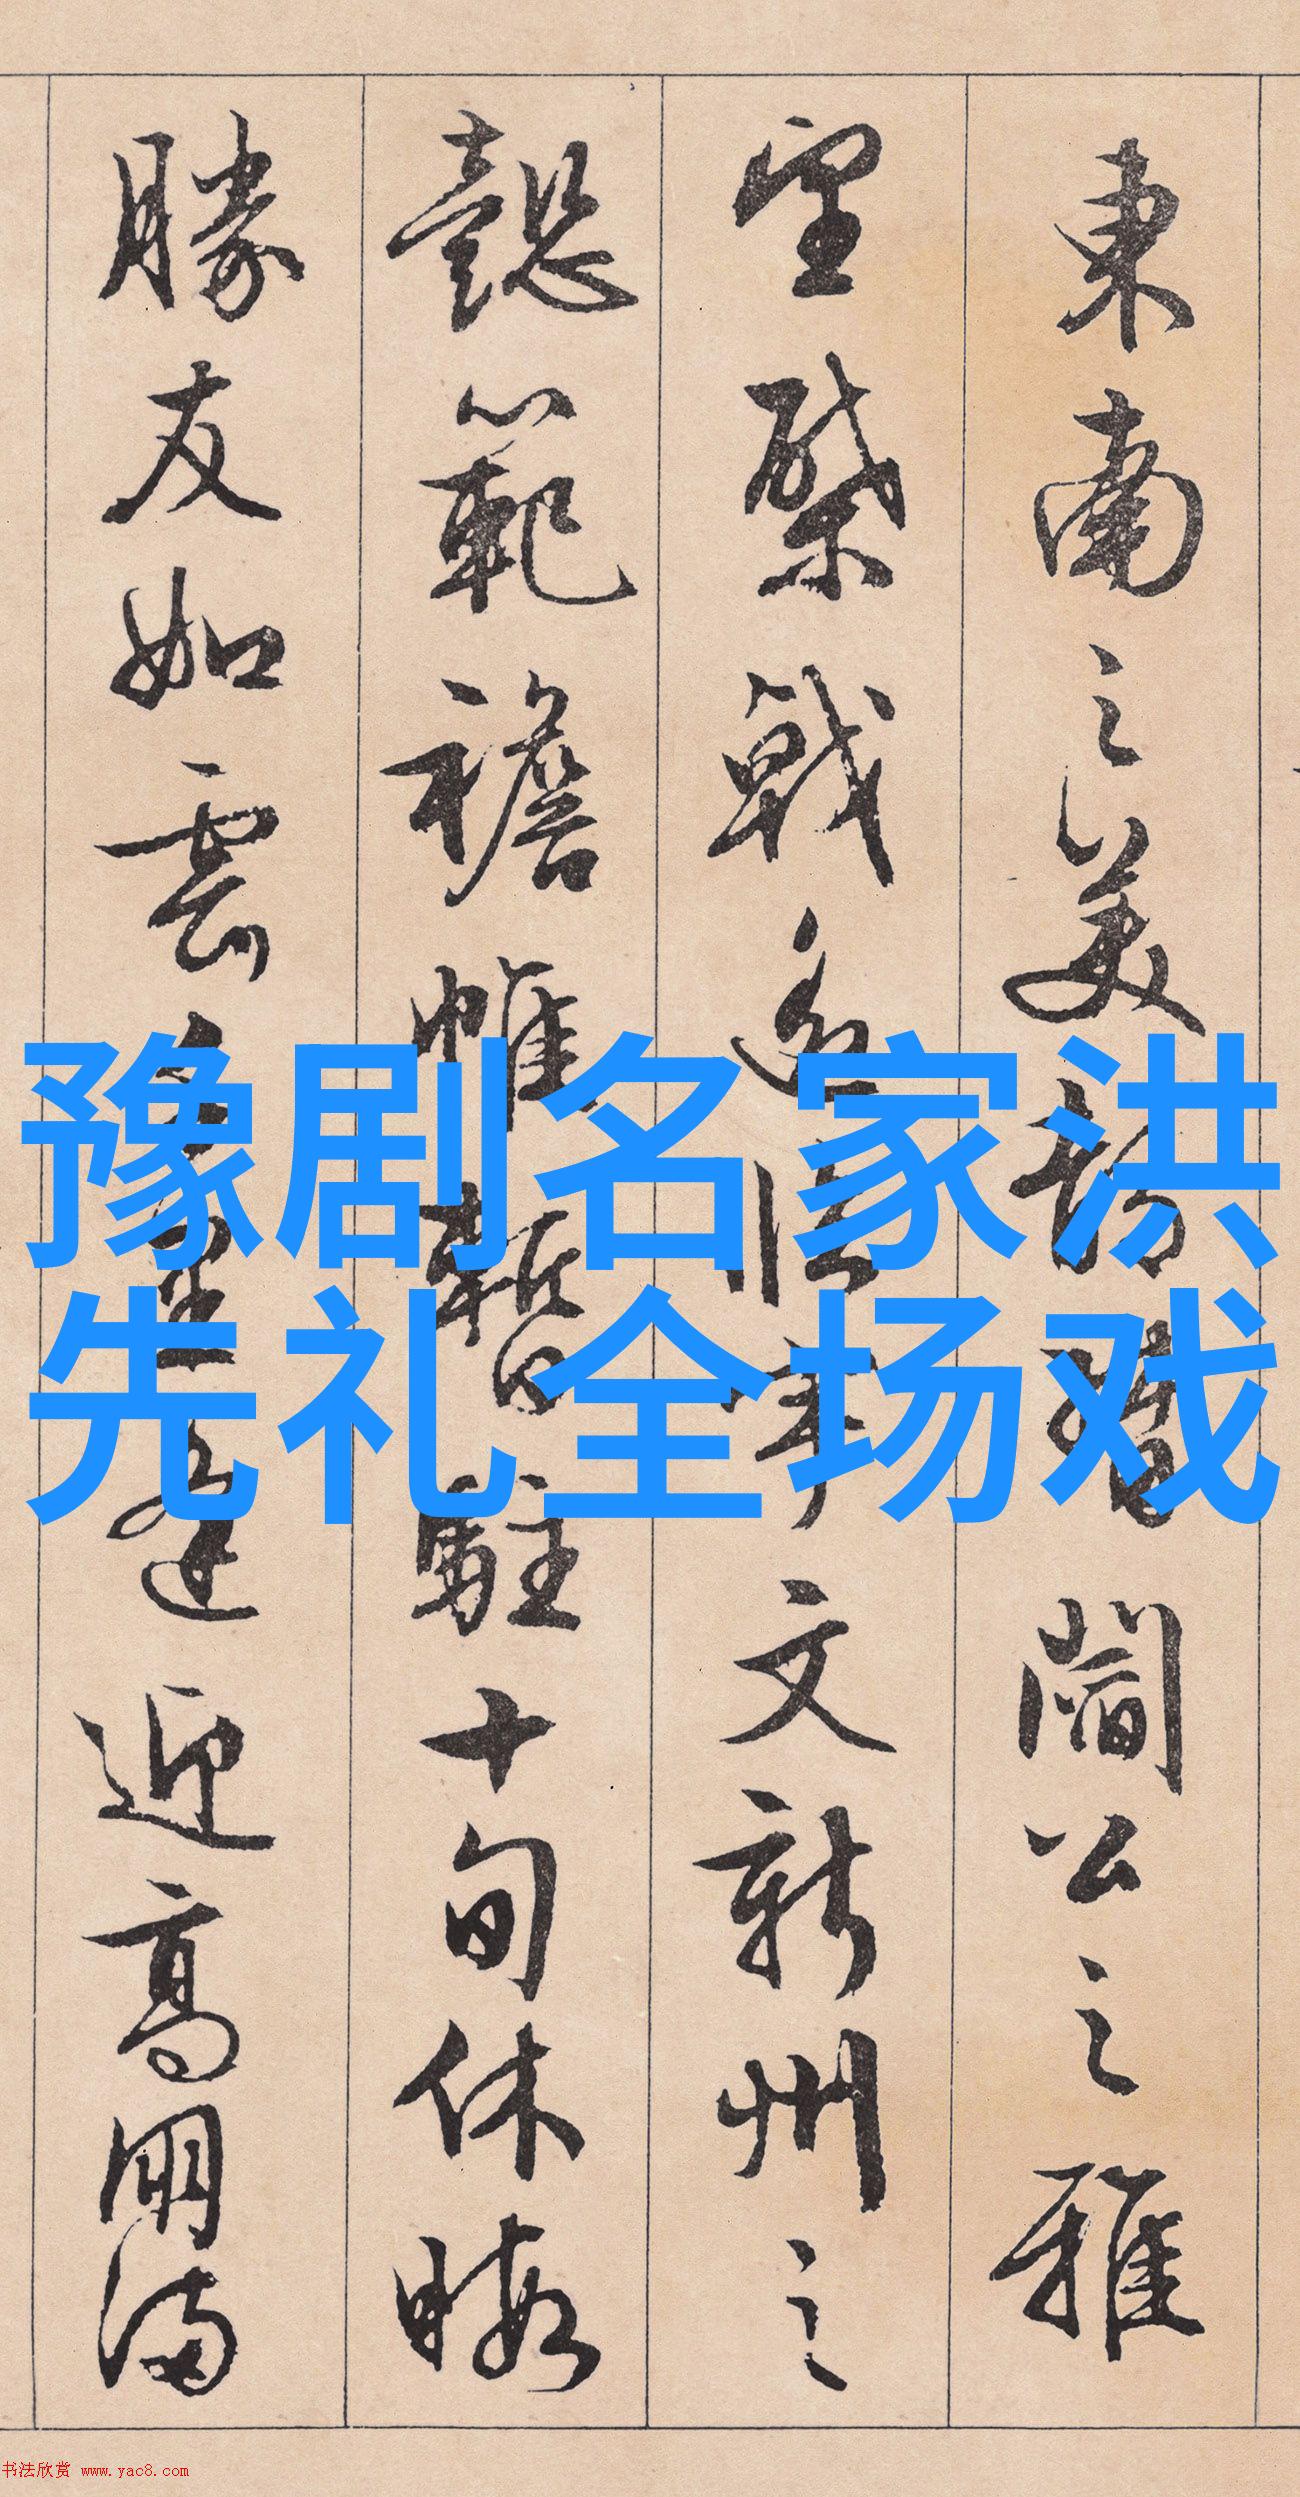 東南之美都督閻公之雅
望棨戟遙臨宇文新州之
懿範襜帷暫駐十旬休暇
勝友如雲千里逢迎高朋滿
豫剧名家洪
先礼全场戏
书法欣赏 www.yac8.com